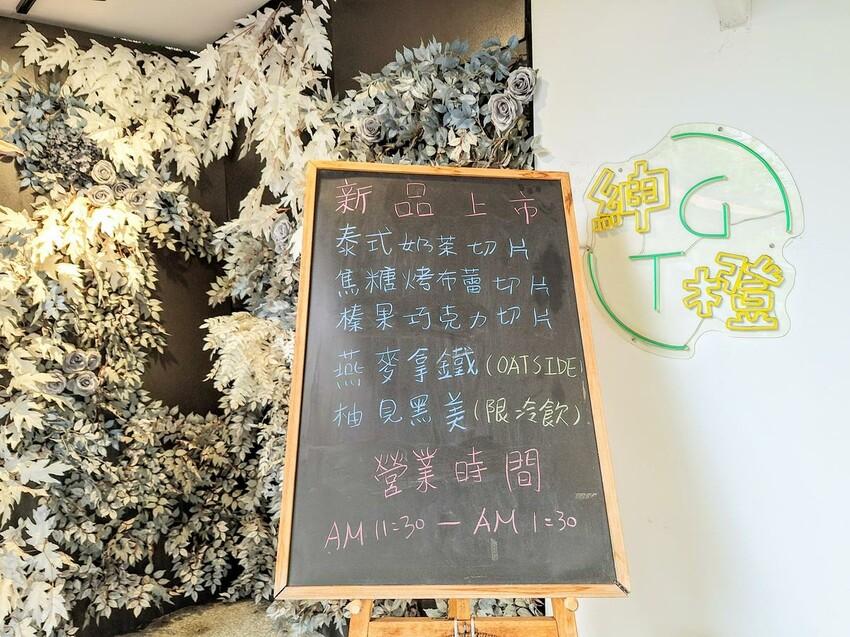 新品上市
泰式奶茶切片
焦糖烤布蕾切片
榛果巧克力切片
燕麥拿鐵(OATSIDE)
柚見黑美(限冷飲)
營業時間
AM 11:30 — AM 1:30
紳 G
T 橙